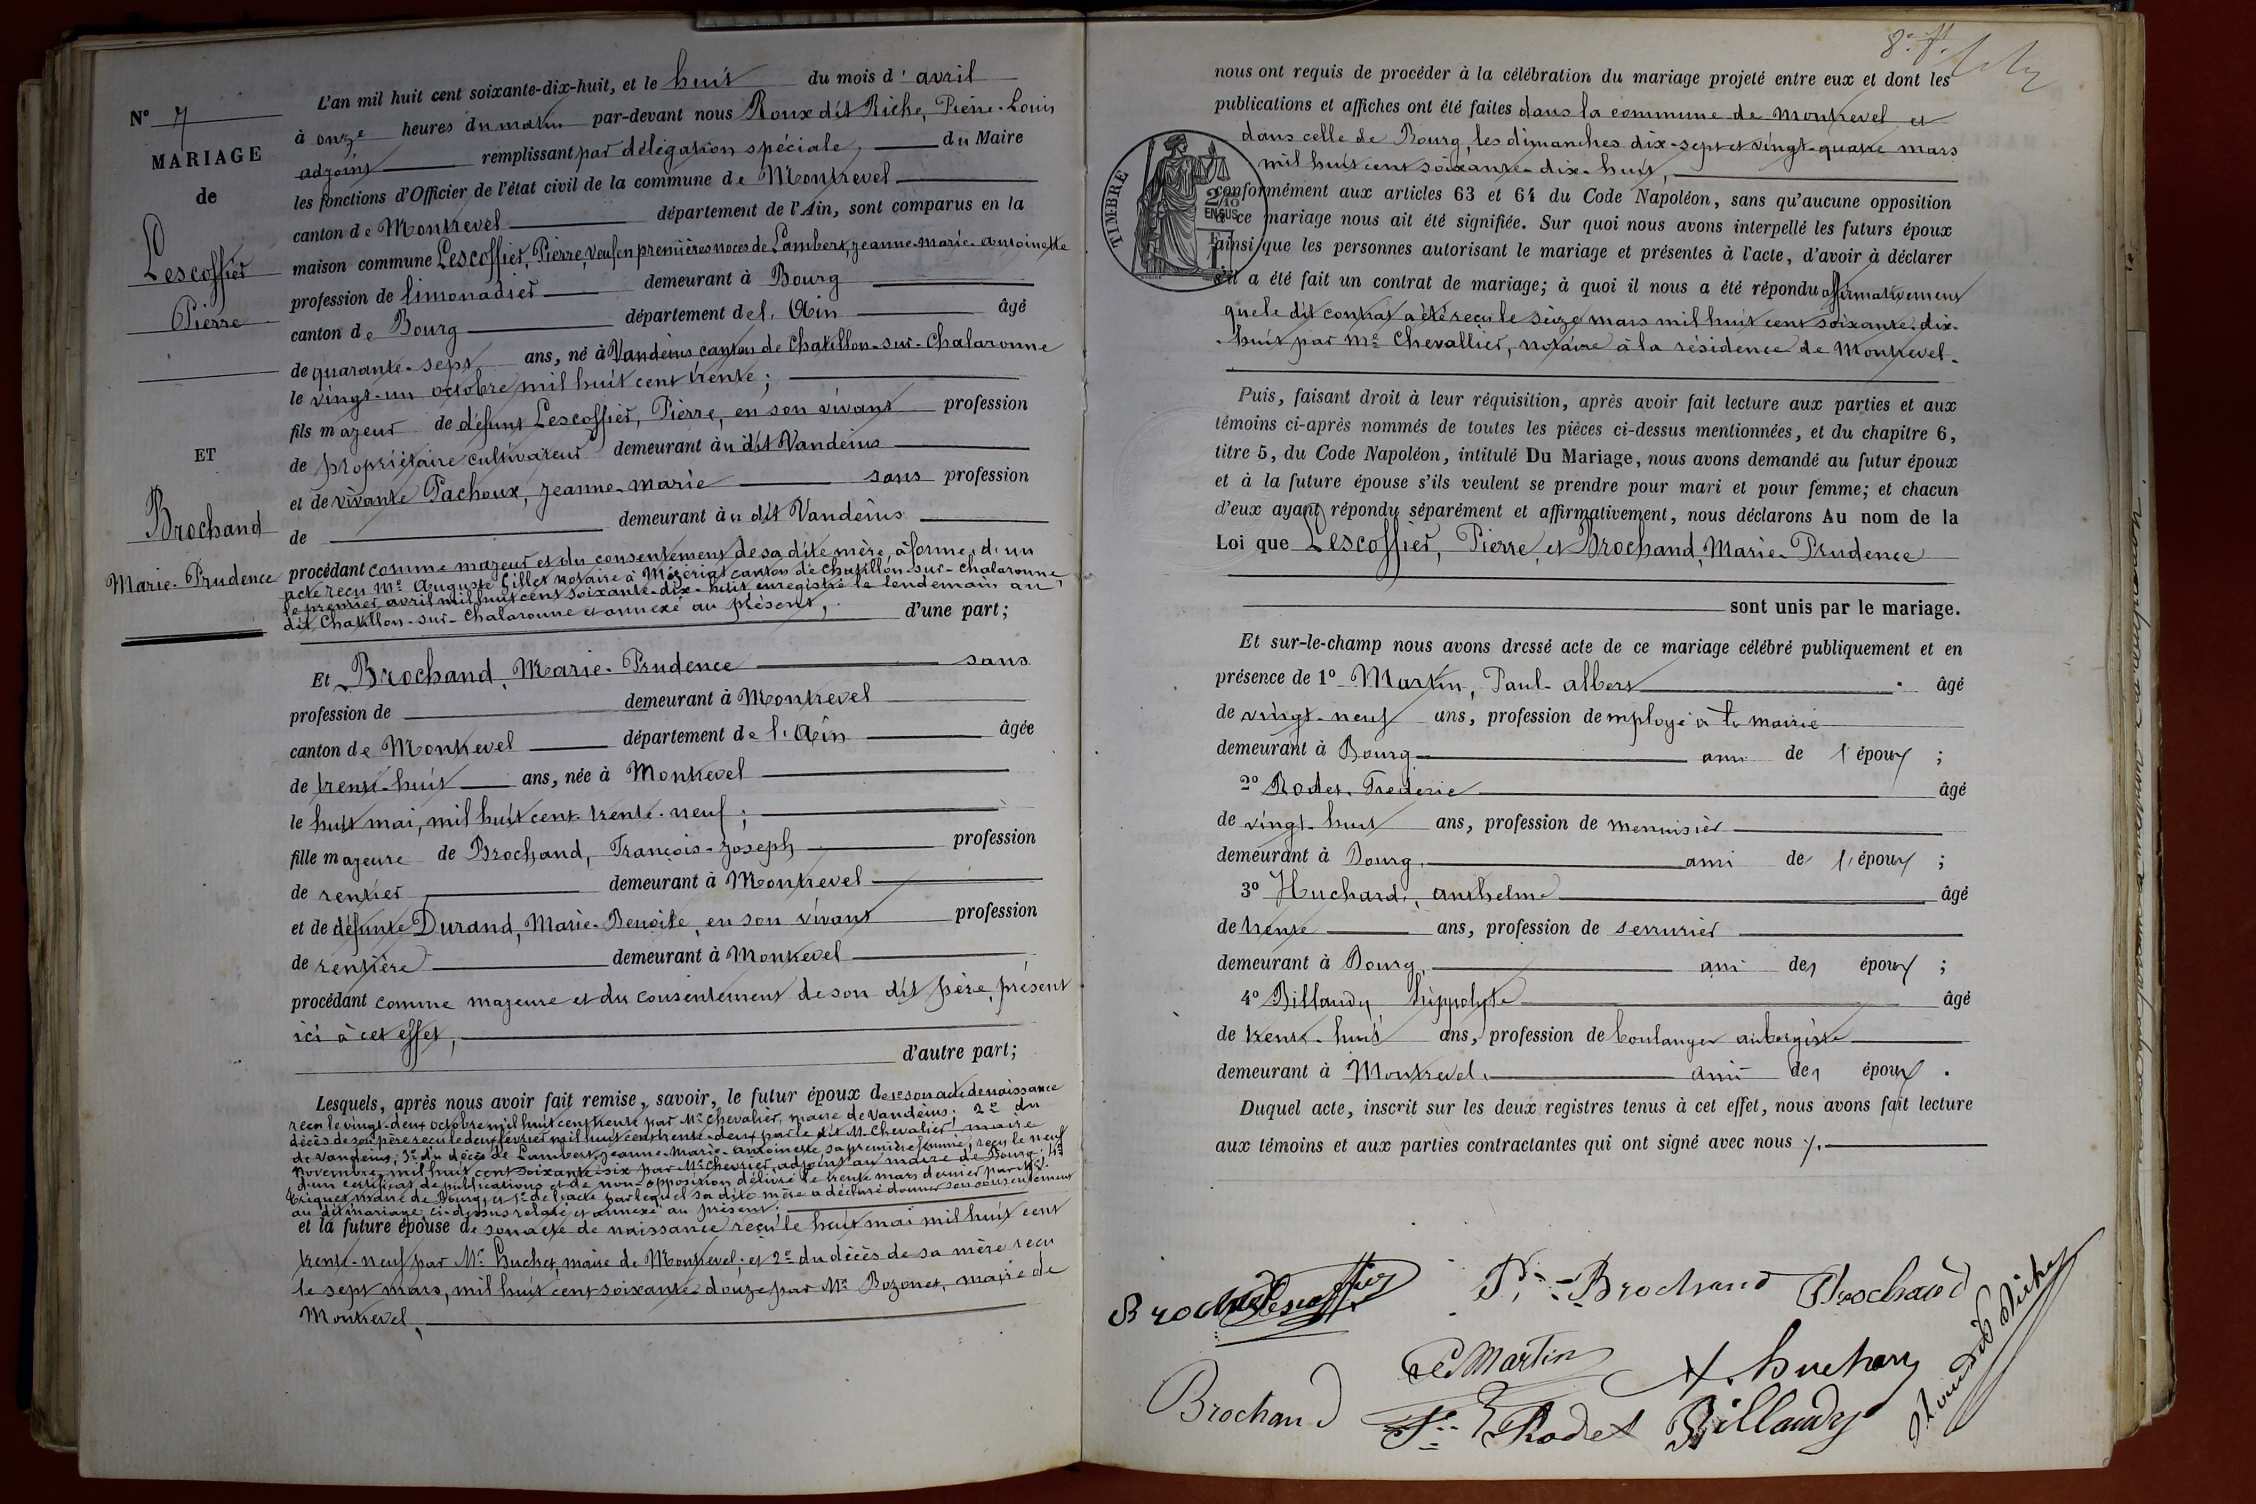 N° 7
MARIAGE
de
Lescoffier
Pierre
ET
Brochand
Marie-Prudence
L'an mil huit cent soixante-dix-huit, et le huit du mois d'avril
à onze heures du matin par-devant nous Roux dit Riche, Pierre-Louis
adjoint remplissant par délégation spéciale, du Maire
les fonctions d'Officier de l'état civil de la commune de Montrevel
canton de Montrevel département de l'Ain, sont comparus en la
maison commune Lescoffier, Pierre, veuf en premières noces de Lambert, Jeanne-Marie-Antoinette
profession de limonadier demeurant à Bourg
canton de Bourg département de l'Ain âgé
de quarante-sept ans, né à Vandeins canton de Chatillon-sur-Chalaronne
le vingt-un octobre mil huit cent trente;
fils majeur de défunt Lescoffier, Pierre, en son vivant profession
de propriétaire cultivateur demeurant au dit Vandeins
et de vivante Pachoux, Jeanne-Marie sans profession
de demeurant au dit Vandeins
procédant comme majeur et du consentement de sa dite mère, à forme d'un
acte reçu Me Auguste Gillet notaire à Mézériat canton de Chatillon-sur-Chalaronne
le premier avril mil huit cent soixante-dix-huit enregistré le lendemain au
dit Chatillon-sur-Chalaronne et annexé au présent, d'une part;
Et Brochand, Marie-Prudence sans
profession de demeurant à Montrevel
canton de Montrevel département de l'Ain âgée
de trente-huit ans, née à Montrevel
le huit mai, mil huit cent trente-neuf;
fille majeure de Brochand, François-Joseph profession
de rentier demeurant à Montrevel
et de défunte Durand, Marie-Benoite, en son vivant profession
de rentière demeurant à Montrevel
procédant comme majeure et du consentement de son dit père, présent
ici à cet effet,
d'autre part;
Lesquels, après nous avoir fait remise, savoir, le futur époux de 1° son acte de naissance
reçu le vingt-deux octobre mil huit cent trente par Mr Chevalier, maire de Vandeins; 2° du
décès de son père reçu le deux février mil huit cent trente-deux par le dit M. Chevalier maire
de Vandeins; 3° du décès de Lambert, Jeanne-Marie-Antoinette, sa première femme, reçu le neuf
novembre, mil huit cent soixante-six par Mr Chevrier, adjoint au maire de Bourg; 4°
d'un certificat de publications et de non-opposition délivré le trente mars dernier par Mr
maire de Bourg, et 5° de l'acte par lequel sa dite mère a déclaré donner son consentement
au dit mariage, ci-dessus relaté et annexé au présent;
et la future épouse de son acte de naissance reçu le huit mai mil huit cent
trente-neuf par Mr Huchet, maire de Montrevel; et 2° du décès de sa mère reçu
le sept mars, mil huit cent soixante-douze par Mr Bozonet, maire de
Montrevel,
nous ont requis de procéder à la célébration du mariage projeté entre eux et dont les
publications et affiches ont été faites dans la commune de Montrevel et
dans celle de Bourg, les dimanches dix-sept et vingt-quatre mars
mil huit cent soixante-dix-huit,
TIMBRE
2/10
EN SUS
conformément aux articles 63 et 64 du Code Napoléon, sans qu'aucune opposition
à ce mariage nous ait été signifiée. Sur quoi nous avons interpellé les futurs époux
ainsi que les personnes autorisant le mariage et présentes à l'acte, d'avoir à déclarer
s'il a été fait un contrat de mariage; à quoi il nous a été répondu affirmativement
que le dit contrat a été reçu le seize mars mil huit cent soixante-dix-
huit par Me Chevallier, notaire à la résidence de Montrevel.
Puis, faisant droit à leur réquisition, après avoir fait lecture aux parties et aux
témoins ci-après nommés de toutes les pièces ci-dessus mentionnées, et du chapitre 6,
titre 5, du Code Napoléon, intitulé Du Mariage, nous avons demandé au futur époux
et à la future épouse s'ils veulent se prendre pour mari et pour femme; et chacun
d'eux ayant répondu séparément et affirmativement, nous déclarons Au nom de la
Loi que Lescoffier, Pierre, et Brochand, Marie-Prudence
sont unis par le mariage.
Et sur-le-champ nous avons dressé acte de ce mariage célébré publiquement et en
présence de 1° Martin, Paul-Albert âgé
de vingt-neuf ans, profession d'employé à la mairie
demeurant à Bourg ami de l'époux;
2° Rodet, Frédéric âgé
de vingt-huit ans, profession de menuisier
demeurant à Bourg, ami de l'époux;
3° Huchard, Anthelme âgé
de trente ans, profession de serrurier
demeurant à Bourg, ami des époux;
4° Billaudy hippolyte âgé
de trente-huit ans, profession de boulanger aubergiste
demeurant à Montrevel. ami des époux.
Duquel acte, inscrit sur les deux registres tenus à cet effet, nous avons fait lecture
aux témoins et aux parties contractantes qui ont signé avec nous
Brochand Lescoffier Brochand Brochand
Martin A. huchard
Brochand Rodet Billaudy
Roux dit Riche